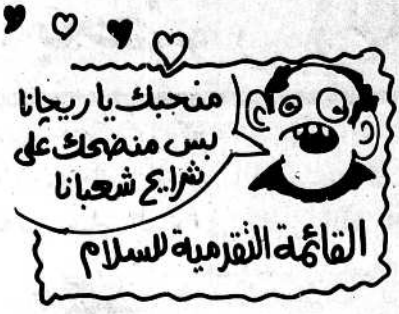 منحبك يا ريجانا
بس منضحك على
شرايح شعبانا
القائمة التقدمية للسلام